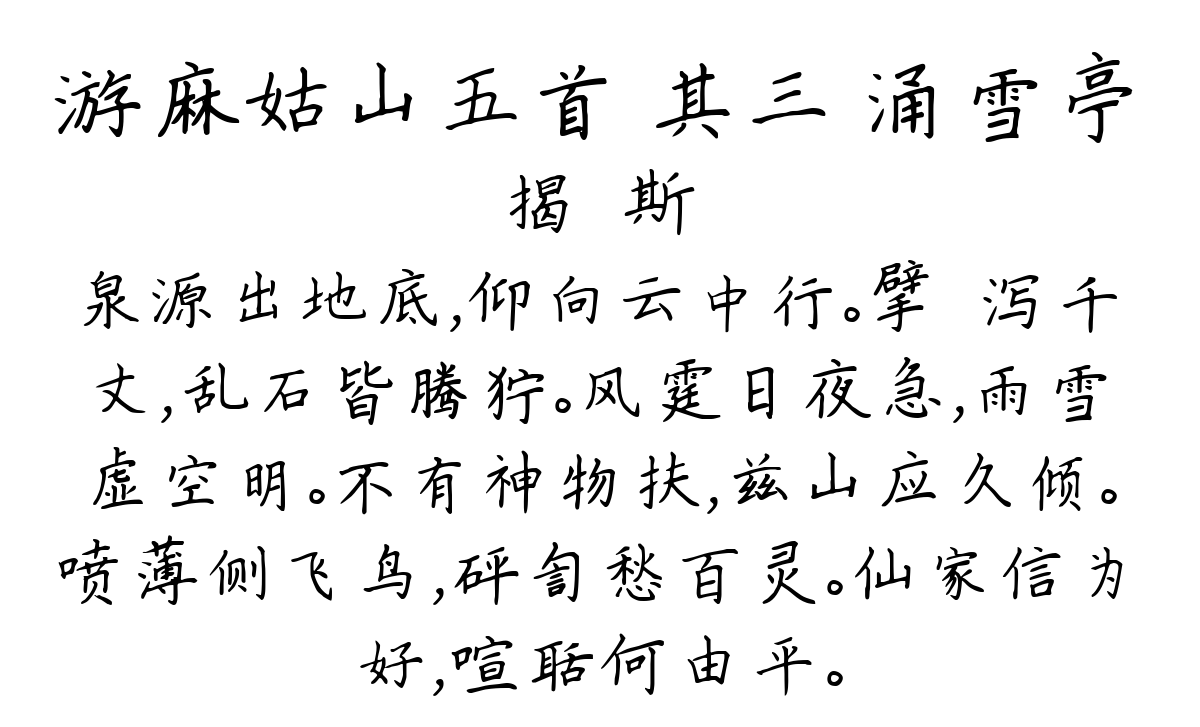 游麻姑山五首 其三 涌雪亭
揭 斯
泉源出地底,仰向云中行。擘 泻千
丈,乱石皆腾狞。风霆日夜急,雨雪
虚空明。不有神物扶,兹山应久倾。
喷薄侧飞鸟,砰訇愁百灵。仙家信为
好,喧聒何由平。